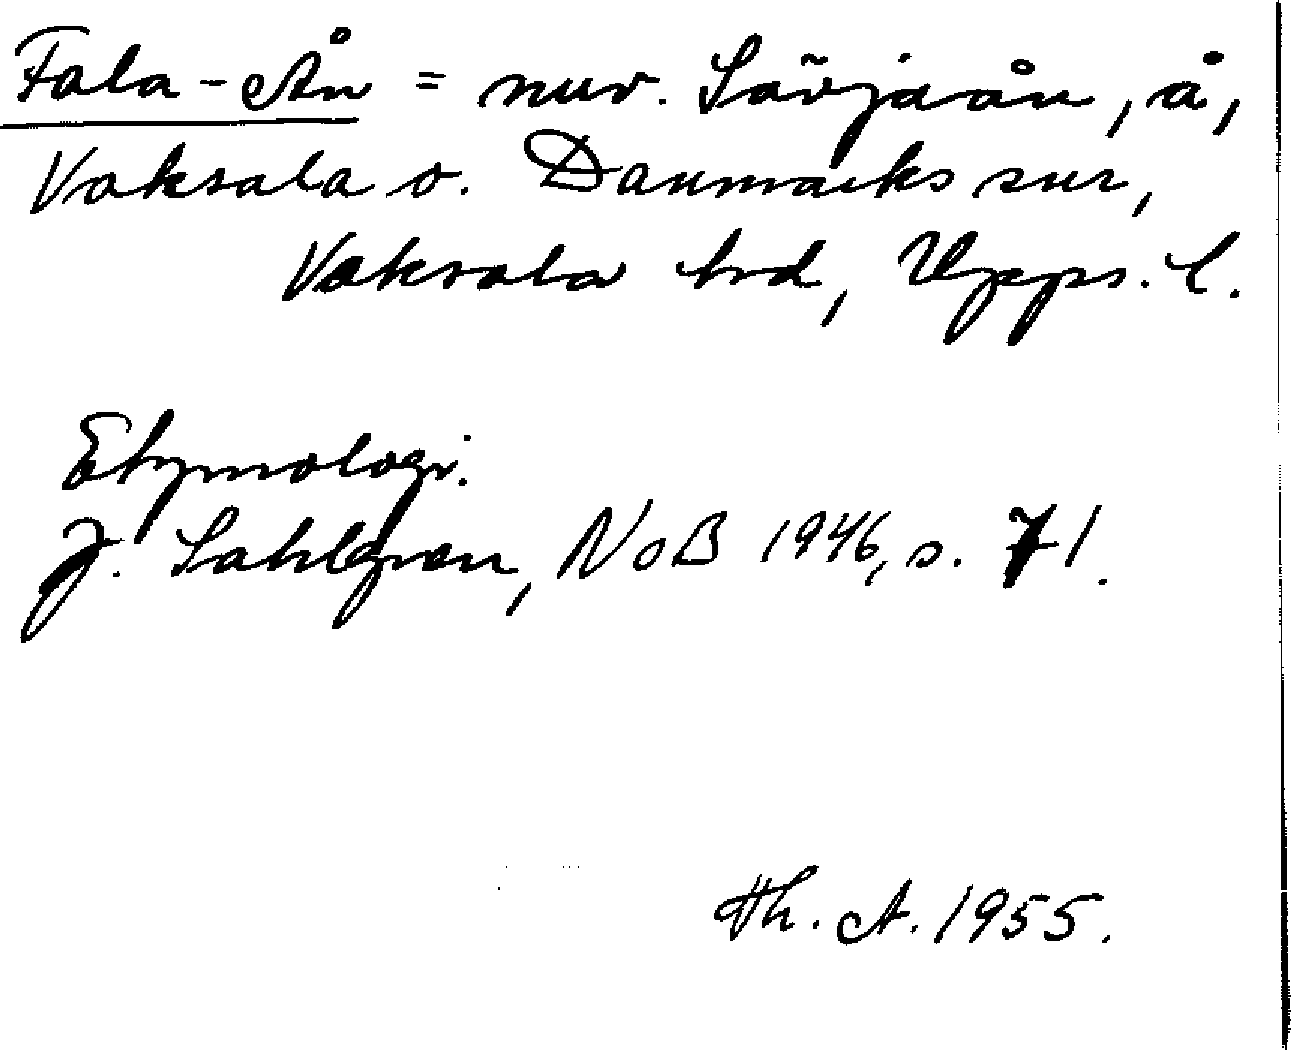 Fala-Ån = nuv. Sävjaån, å,
Vaksala o. Danmarks snr,
Vaksala hd, Upps. l.
Etymologi.
J. Sahlgren, NoB 1946, s. 71.
Th. A. 1955.